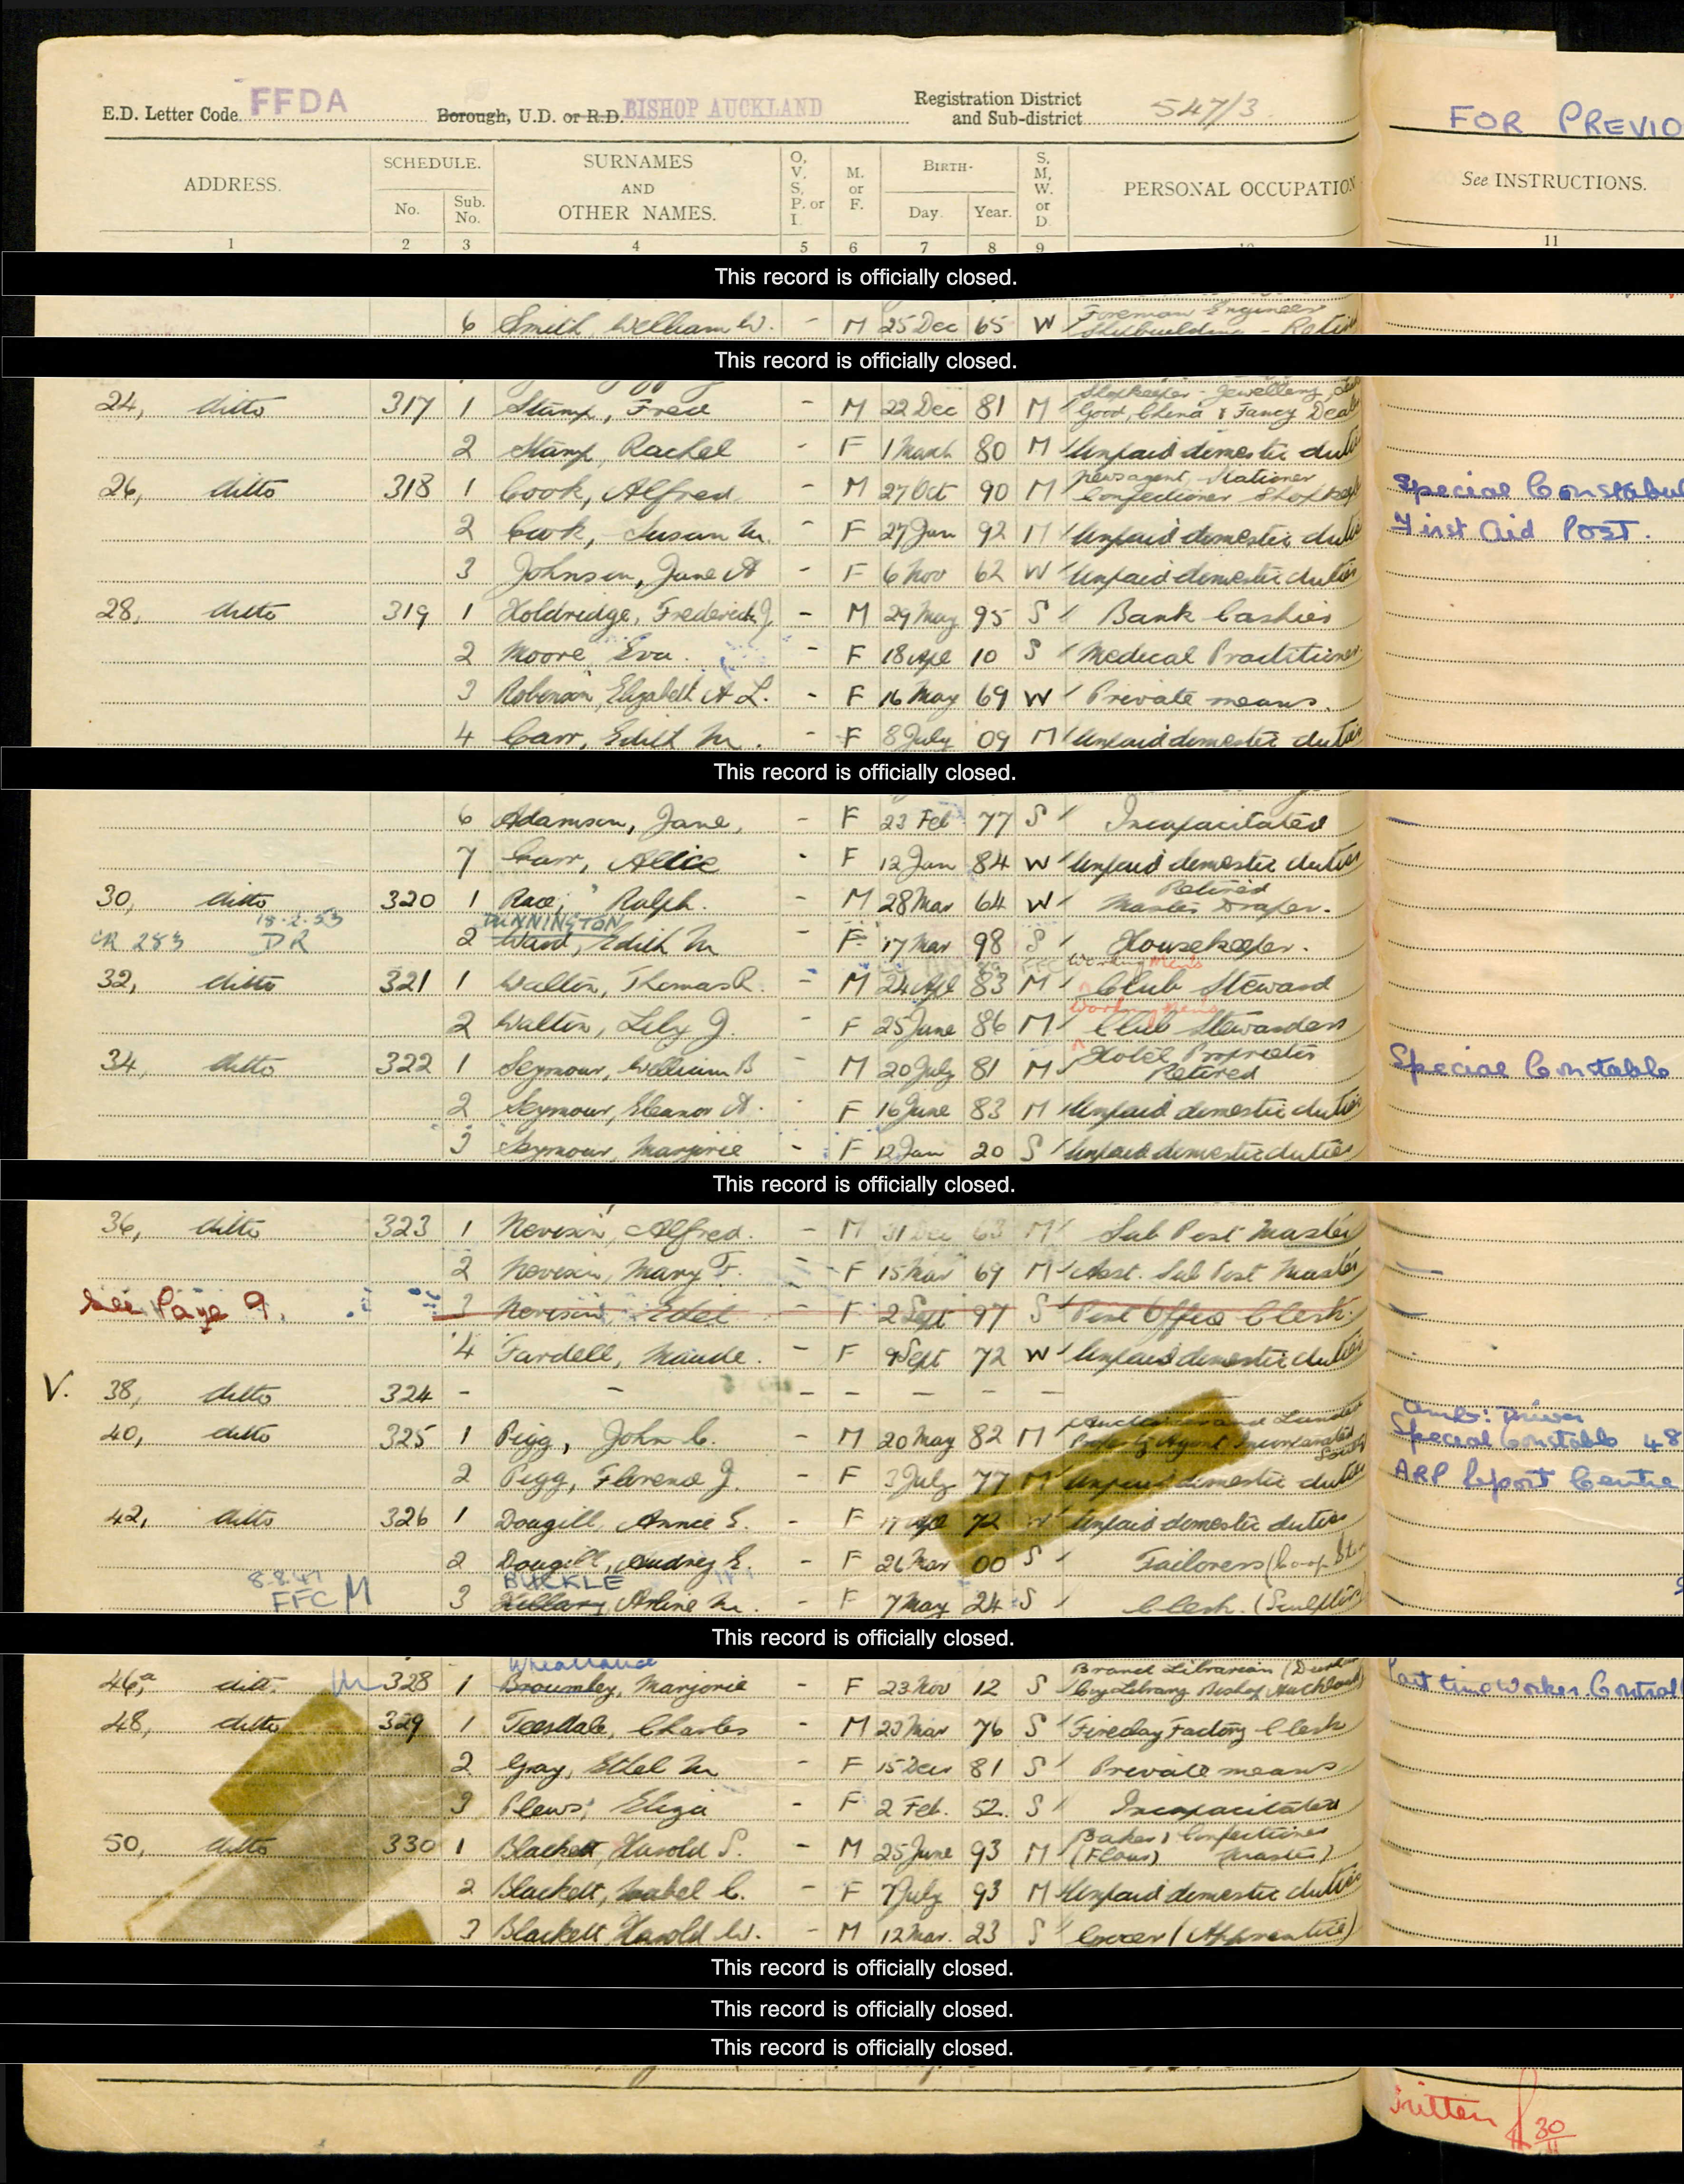 E.D. Letter Code FFDA Borough, U.D. or R.D. BISHOP AUCKLAND Registration District and Sub-district 547/3 FOR PREVIO
ADDRESS. SCHEDULE. No. Sub. No. SURNAMES AND OTHER NAMES. O, V, S, P. or I. M. or F. BIRTH- Day. Year. S, M, W. or D. PERSONAL OCCUPATION See INSTRUCTIONS.
1 2 3 4 5 6 7 8 9 10 11
This record is officially closed.
6 Smith, William W. - M 25 Dec 65 W Foreman Engineer Shipbuilding - Retired
This record is officially closed.
24, ditto 317 1 Stamp, Fred - M 22 Dec 81 M Shopkeeper - Jewellery, Good, China & Fancy Deal
2 Stamp, Rachel - F 1 March 80 M Unpaid domestic duties
26, ditto 318 1 Cook, Alfred - M 27 Oct 90 M Newsagent, Stationer Confectioner Shopkeep Special Constabul
2 Cook, Susan M. - F 27 Jan 92 M Unpaid domestic duties First Aid Post.
3 Johnson, Jane A - F 6 Nov 62 W Unpaid domestic duties
28, ditto 319 1 Holdridge, Frederick J - M 29 May 95 S Bank Cashier
2 Moore, Eva. - F 18 Apl 10 S Medical Practitioner
3 Robinson, Elizabeth A L. - F 16 May 69 W Private means.
4 Carr, Edith M. - F 8 July 09 M Unpaid domestic duties
This record is officially closed.
6 Adamson, Jane, - F 23 Feb 77 S Incapacitated
7 Carr, Alice - F 12 Jan 84 W Unpaid domestic duties
30, ditto 320 1 Race, Ralph. - M 28 Mar 64 W Retired Master Draper.
CR 283 18.2.53 DR 2 DUNNINGTON Ward, Edith M - F 17 Mar 98 S Housekeeper.
32, ditto 321 1 Walton, Thomas R. - M 24 Apl 83 M Working Mens Club Steward
2 Walton, Lily J. - F 25 June 86 M Working Mens Club Stewardess
34, ditto 322 1 Seymour, William B - M 20 July 81 M Hotel Proprietor Retired Special Constable
2 Seymour, Eleanor A. - F 16 June 83 M Unpaid domestic duties
3 Seymour, Marjorie - F 12 Jan 20 S Unpaid domestic duties
This record is officially closed.
36, ditto 323 1 Nevison, Alfred. - M 31 Dec 63 M Sub Post Master
2 Nevison, Mary F. - F 15 Mar 69 M Asst. Sub Post Master
See Page 9. 3 Nevison, Ethel - F 2 Sept 97 S Post Office Clerk.
4 Fardell, Maude. - F 9 Sept 72 W Unpaid domestic duties
V. 38, ditto 324 - - - - - - -
40, ditto 325 1 Pigg, John C. - M 20 May 82 M Property Agent Incorporated Amb: Driver Special Constable 48
2 Pigg, Florence J. - F 3 July 77 M Unpaid domestic duties ARP Report Centre
42, ditto 326 1 Dougill, Annie E. - F 17 Apl 72 W Unpaid domestic duties
2 Dougill, Audrey E. - F 26 Mar 00 S Tailoress (Co-op. Sto
8.8.47 FFC M 3 BUCKLE Arline M. - F 7 May 24 S Clerk.
This record is officially closed.
46a, ditto M 328 1 Bromley, Marjorie - F 23 Nov 12 S Branch Librarian Library Bishop Auckland Part time worker Control
48, ditto 329 1 Teesdale, Charles - M 23 Mar 76 S Fireclay Factory Clerk
2 Gray, Ethel M - F 15 Dec 81 S Private means
3 Plews, Eliza - F 2 Feb. 52. S Incapacitated
50, ditto 330 1 Blackett, Harold S. - M 25 June 93 M Baker, Confectioner (Flour) (Master)
2 Blackett, Mabel C. - F 7 July 93 M Unpaid domestic duties
3 Blackett, Harold W. - M 12 Mar. 23 S Grocer (Apprentice)
This record is officially closed.
This record is officially closed.
This record is officially closed.
30/11